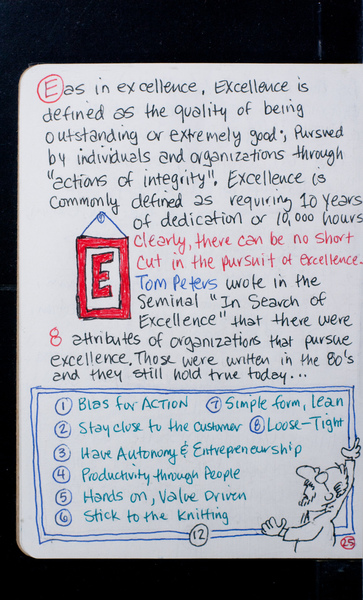 E as in excellence. Excellence is
defined as the quality of being
outstanding or extremely good; Pursued
by individuals and organizations through
"actions of integrity". Excellence is
commonly defined as requiring 10 Years
of dedication or 10,000 hours
Clearly, there can be no short
cut in the pursuit of excellence.
E
Tom Peters wrote in the
Seminal "In Search of
Excellence" that there were
8 attributes of organizations that pursue
excellence. Those were written in the 80's
and they still hold true today...
1 Bias for ACTION 7 Simple form, lean
2 Stay close to the Customer 8 Loose-Tight
3 Have Autonomy & Entrepreneurship
4 Productivity through People
5 Hands on, Value Driven
6 Stick to the Knitting
12
25